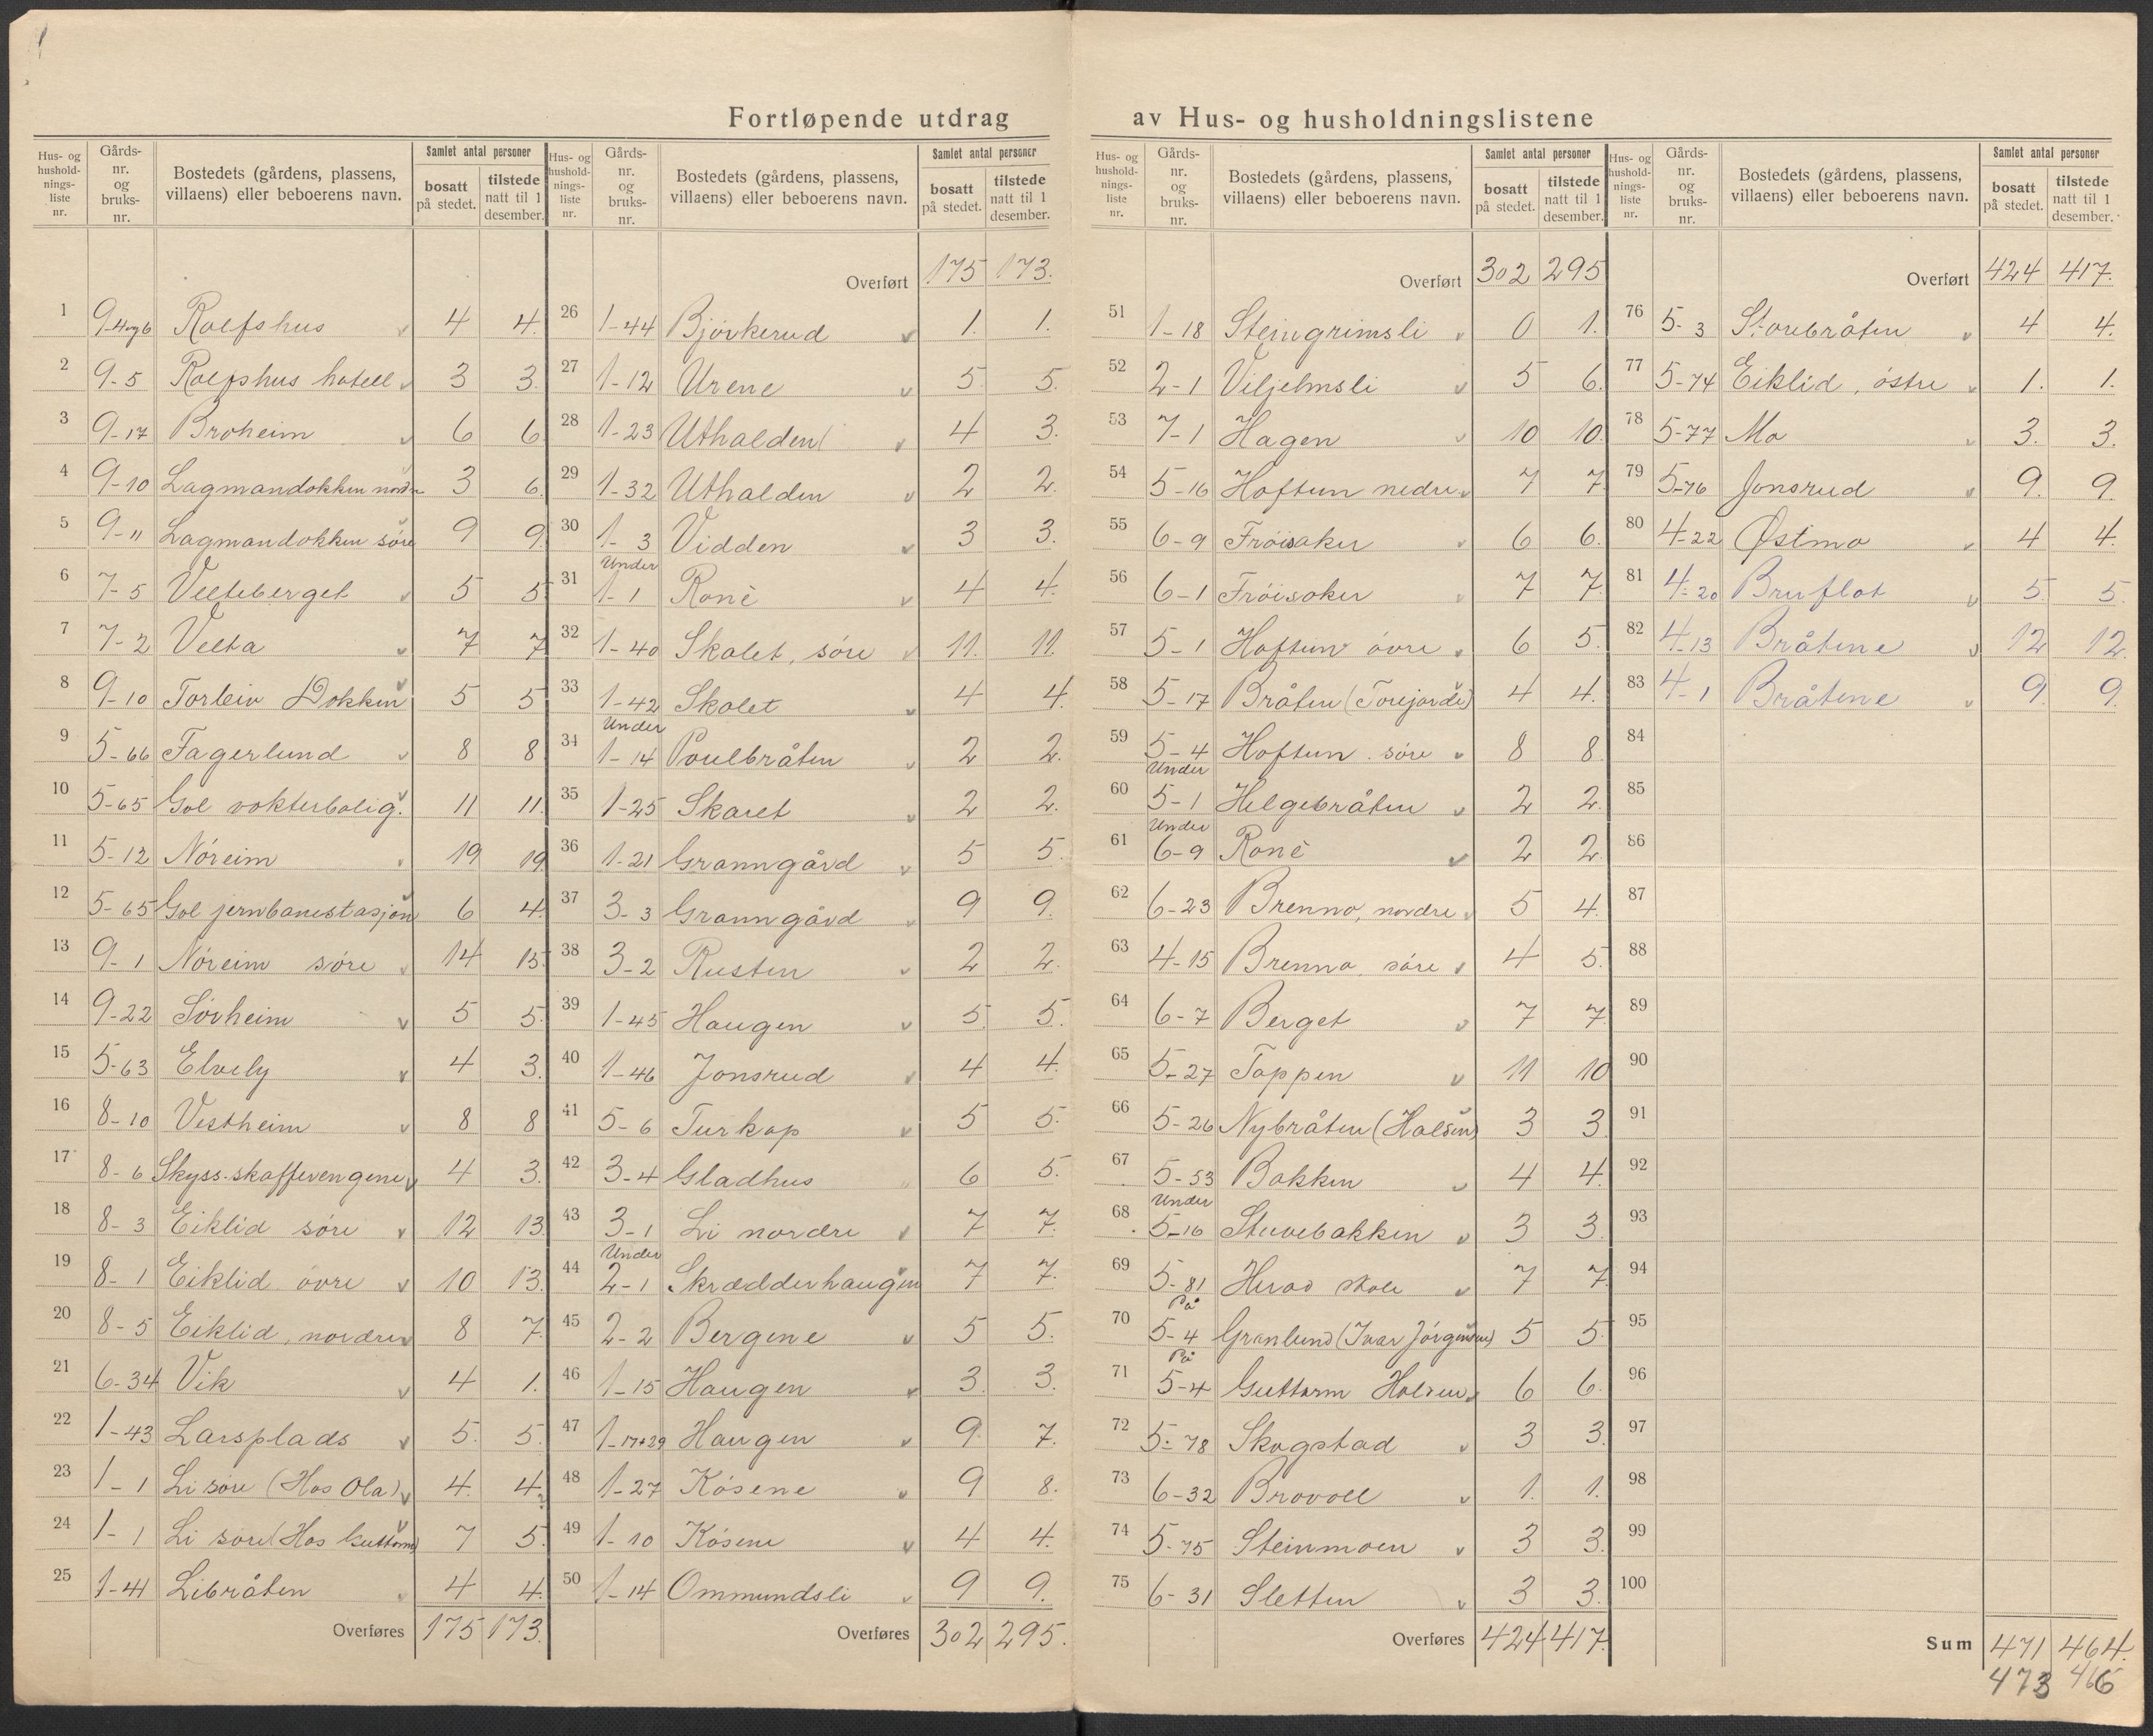 Fortløpende utdrag av Hus- og husholdningslistene
Hus- og husholdnings- liste nr. Gårds- nr. og bruks- nr. Bostedets (gårdens, plassens, villaens) eller beboerens navn. Samlet antal personer bosatt på stedet. tilstede natt til 1 desember.
1 9-4og6 Rolfshus 4 4.
2 9-5 Rolfshus hotell 3 3.
3 9-17 Broheim 6 6
4 9-10 Lagmandokken nordre 3 6.
5 9-11 Lagmandokken søre 9 9
6 7-5 Velteberget 5 5
7 7-2 Velta 7 7
8 9-10 Torleiv Dokken 5 5
9 5-66 Fagerlund 8 8
10 5-65 Gol vokterbolig. 11 11.
11 5-12 Nóreim 19 19
12 5-65 Gol jernbanestasjon 6 4.
13 9-1 Nóreim søre 14 15
14 9-22 Sórheim 5 5.
15 5-63 Elvely 4 3.
16 8-10 Vestheim 8 8
17 8-6 Skyss.skafferengene 4 3.
18 8-3 Eiklid søre 12 13
19 8-1 Eiklid óvre 10 13.
20 8-5 Eiklid, nordre 8 7.
21 6-34 Vik 4 1.
22 1-43 Larsplads 5. 5.
23 1-1 Li søre (Hos Ola) 4. 4.
24 1-1 Li søre (Hos Guttorm) 7 5.
25 1-41 Libråten 4 4.
Overføres 175 173.
Hus- og husholdnings- liste nr. Gårds- nr. og bruks- nr. Bostedets (gårdens, plassens, villaens) eller beboerens navn. Samlet antal personer bosatt på stedet. tilstede natt til 1 desember.
Overført 175 173.
26 1-44 Bjórkerud 1. 1.
27 1-12 Urene 5 5.
28 1-23 Uthalden 4 3.
29 1-32 Uthalden 2 2.
30 1-3 Vidden 3 3.
31 Under 1-1 Roné 4 4.
32 1-40 Skolet, søre 11. 11.
33 1-42 Skolet 4 4.
34 Under 1-14 Poulbråten 2 2.
35 1-25 Skaret 2 2.
36 1-21 Granngård 5 5.
37 3-3 Granngård 9 9.
38 3-2 Rusten 2 2.
39 1-45 Haugen 5. 5.
40 1-46 Jonsrud 4 4.
41 5-6 Turkop 5 5.
42 3-4 Gladhus 6 5.
43 3-1 Li nordre 7 7.
44 Under 2-1 Skrædderhaugen 7 7.
45 2-2 Bergene 5 5.
46 1-15 Haugen 3. 3.
47 1-17+29 Haugen 9. 7.
48 1-27 Kósene 9 8.
49 1-10 Kósene 4 4.
50 1-14 Ommundsli 9 9.
Overføres 302 295.
Hus- og husholdnings- liste nr. Gårds- nr. og bruks- nr. Bostedets (gårdens, plassens, villaens) eller beboerens navn. Samlet antal personer bosatt på stedet. tilstede natt til 1 desember.
Overført 302 295
51 1-18 Steingrimsli 0 1.
52 2-1 Viljelmsli 5 6.
53 7-1 Hagen 10 10.
54 5-16 Hoftun nedre 7 7
55 6-9 Fróisaker 6 6.
56 6-1 Fróisaker 7 7.
57 5-1 Hoftun óvre 6 5.
58 5-17 Bråten (Torejorde) 4 4.
59 5-4 Hoftun. søre 8 8.
60 Under 5-1 Helgebråten 2 2.
61 Under 6-9 Roné 2 2.
62 6-23 Brenno, nordre 5 4.
63 4-15 Brenno, søre 4 5.
64 6-7 Berget 7 7
65 5-27 Toppen 11 10
66 5-26 Nybråten (Halsen) 3 3.
67 5-53 Bakken 4 4.
68 Under 5-16 Stuvebakken 3 3.
69 5-81 Herad skole 7 7.
70 På 5-4 Granlund (Ivar Jórgensen) 5 5.
71 På 5-4 Guttorm Halsen 6 6.
72 5-78 Skogstad 3 3.
73 6-32 Brovoll 1. 1.
74 5-75 Steinmoen 3 3.
75 6-31 Sletten 3 3.
Overføres 424 417.
Hus- og husholdnings- liste nr. Gårds- nr. og bruks- nr. Bostedets (gårdens, plassens, villaens) eller beboerens navn. Samlet antal personer bosatt på stedet. tilstede natt til 1 desember.
Overført 424 417.
76 5-3 Storebråten 4 4.
77 5-74 Eiklid, óstre 1. 1.
78 5-77 Mo 3. 3.
79 5-76 Jonsrud 9. 9.
80 4-22 Østmo 4 4.
81 4-20 Bruflot 5. 5.
82 4-13 Bråtene 12 12.
83 4-1 Bråtene 9. 9.
84
85
86
87
88
89
90
91
92
93
94
95
96
97
98
99
100
Sum 471 464.
473 466